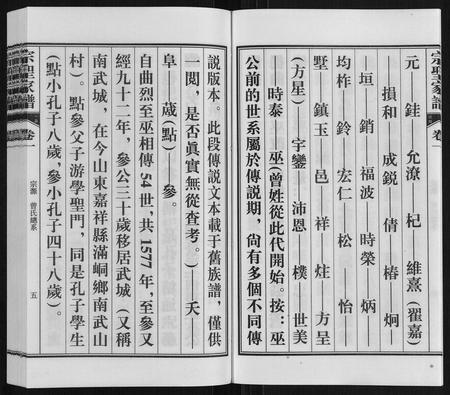 宗聖家譜
卷
元 銈 允潦 杞 維熹（翟嘉）
——損和——成銳——倩——椿——炯——
——垣——銷——福波——時榮——炳——
均柞——鈴——宏仁——松——怡——
墅——鎮玉——邑——祥——炷——方呈
（方星）——字鑾——沛恩——樸——世美
——時泰——巫（曾姓從此代開始。按：巫
公前的世系屬於傳説期，尙有多個不同傳
説版本。此段傳説文本載于舊族譜，僅供
一閲，是否眞實無從查考。）——夭——
阜——蒧（點）——參。
自曲烈至巫相傳54世，共1577年，至參又
經九十二年，參公三十歲移居武城（又稱
南武城，在今山東嘉祥縣滿硐鄉南武山
村）。點參父子游學聖門，同是孔子學生
（點小孔子八歲，參小孔子四十八歲）。
宗聖家譜
卷一
宗源 曾氏總系
五